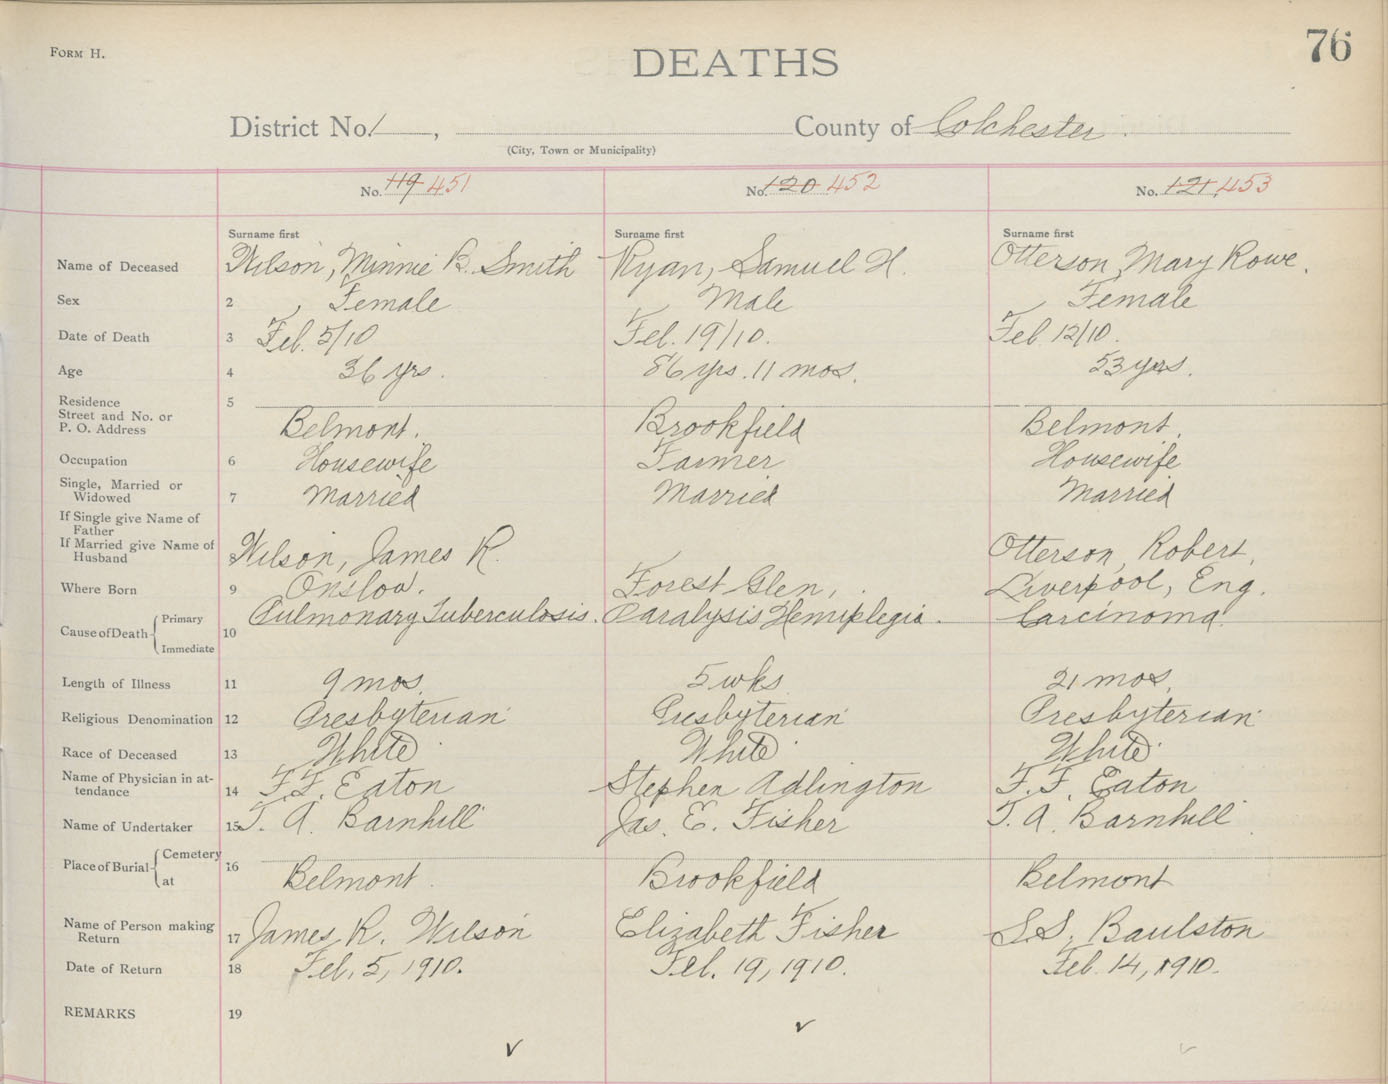 FORM H.
DEATHS
76
District No. 1, County of Colchester.
(City, Town or Municipality)
No. 119 451 No. 120 452 No. 121 453
Surname first Surname first Surname first
Name of Deceased 1 Wilson, Minnie B. Smith Ryan, Samuel H. Otterson, Mary Rowe.
Sex 2 Female Male Female
Date of Death 3 Feb. 5/10 Feb. 19/10. Feb 12/10.
Age 4 36 yrs. 86 yrs. 11 mos. 53 yrs.
Residence 5
Street and No. or
P. O. Address Belmont. Brookfield Belmont.
Occupation 6 Housewife Farmer Housewife
Single, Married or
Widowed 7 Married Married Married
If Single give Name of
Father
If Married give Name of
Husband 8 Wilson, James R. Otterson, Robert.
Where Born 9 Onslow. Forest Glen, Liverpool, Eng.
Cause of Death Primary Pulmonary Tuberculosis. Paralysis Hemiplegia. Carcinoma.
10
Immediate
Length of Illness 11 9 mos. 5 wks 21 mos.
Religious Denomination 12 Presbyterian Presbyterian Presbyterian
Race of Deceased 13 White White White
Name of Physician in at-
tendance 14 F. F. Eaton Stephen Adlington F. F. Eaton
Name of Undertaker 15 T. A. Barnhill Jas. E. Fisher T. A. Barnhill
Place of Burial Cemetery 16
at Belmont Brookfield Belmont
Name of Person making
Return 17 James R. Wilson Elizabeth Fisher S.S. Baulston
Date of Return 18 Feb. 5, 1910. Feb. 19, 1910. Feb. 14, 1910.
REMARKS 19